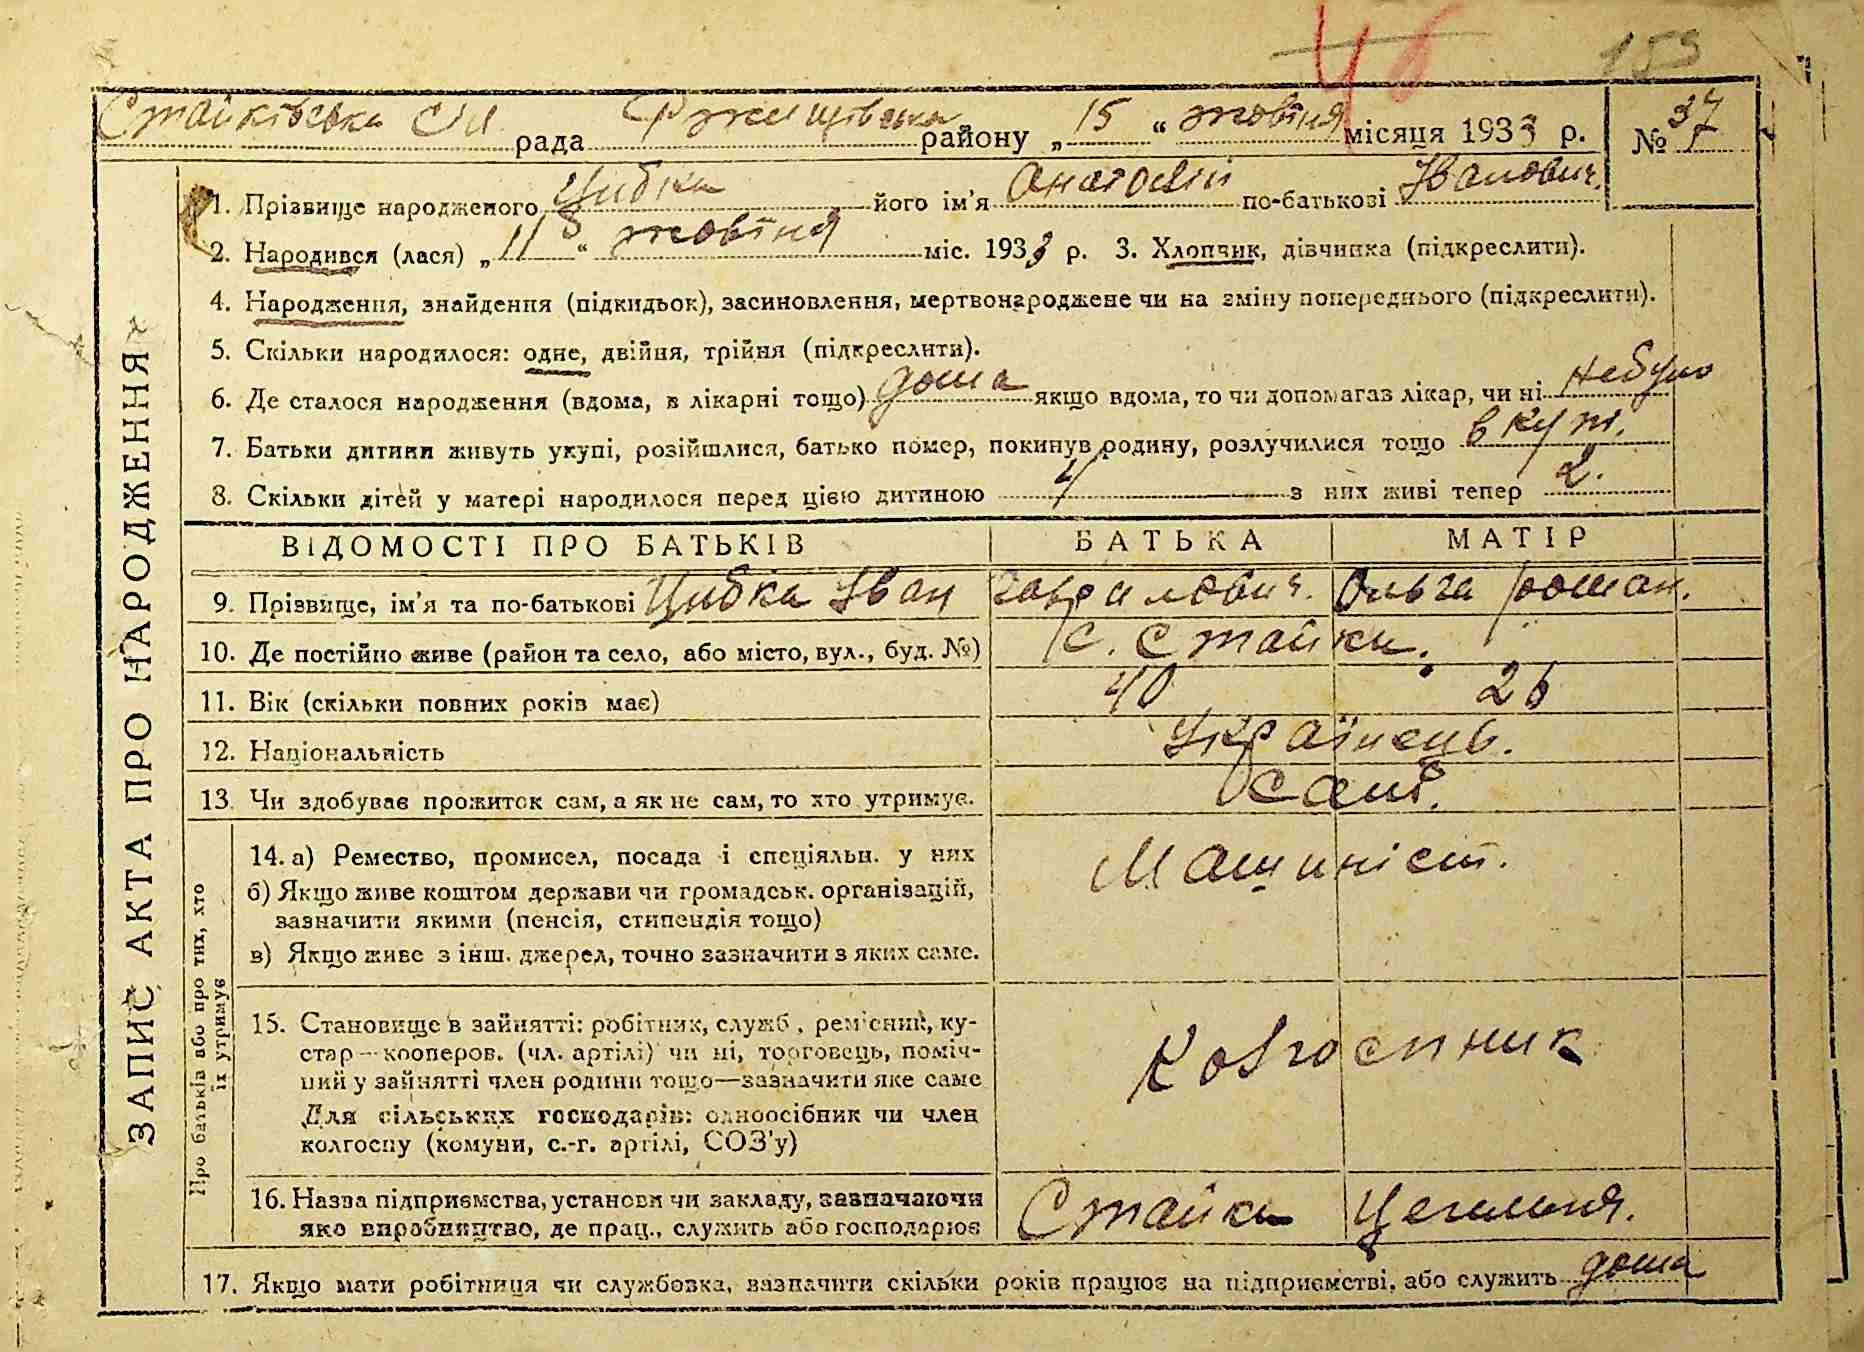 46 153
Стайківська с/и рада Ржищівська району „15“ жовтня місяця 1933 р. № 37
ЗАПИС АКТА ПРО НАРОДЖЕННЯ
1. Прізвище народженого Цибка його ім'я Анатолій по-батькові Іванович.
2. Народився (лася) „ “ жовтня міс. 1933 р. 3. Хлопчик, дівчинка (підкреслити).
4. Народження, знайдення (підкидьок), засиновлення, мертвонароджене чи на зміну попереднього (підкреслити).
5. Скільки народилося: одне, двійня, трійня (підкреслити).
6. Де сталося народження (вдома, в лікарні тощо) дома якщо вдома, то чи допомагав лікар, чи ні небуло
7. Батьки дитини живуть укупі, розійшлися, батько помер, покинув родину, розлучилися тощо вкупі.
8. Скільки дітей у матері народилося перед цією дитиною 4 з них живі тепер 2.
ВІДОМОСТІ ПРО БАТЬКІВ БАТЬКА МАТІР
9. Прізвище, ім'я та по-батькові Цибка Іван Гаврилович. Ольга Роман.
10. Де постійно живе (район та село, або місто, вул., буд. №) с. Стайки.
11. Вік (скільки повних років має) 40 26
12. Національність Українець.
13. Чи здобуває прожиток сам, а як не сам, то хто утримує. самі.
Про батьків або про тих, хто їх утримує
14. а) Ремество, промисел, посада і спеціяльн. у них Машиніст.
б) Якщо живе коштом держави чи громадськ. організацій,
зазначити якими (пенсія, стипендія тощо)
в) Якщо живе з інш. джерел, точно зазначити з яких саме.
15. Становище в зайнятті: робітник, служб., ремісник, ку-
стар—кооперов. (чл. артілі) чи ні, торговець, поміч-
ний у зайнятті член родини тощо—зазначити яке саме
Для сільських господарів: одноосібник чи член
колгоспу (комуни, с.-г. артілі, СОЗ'у)
Колгоспник
16. Назва підприємства, установи чи закладу, зазначаючи
яко виробництво, де прац., служить або господарює
Стайки Цегельня.
17. Якщо мати робітниця чи службовка, вазначити скільки років працює на підприємстві, або служить дома